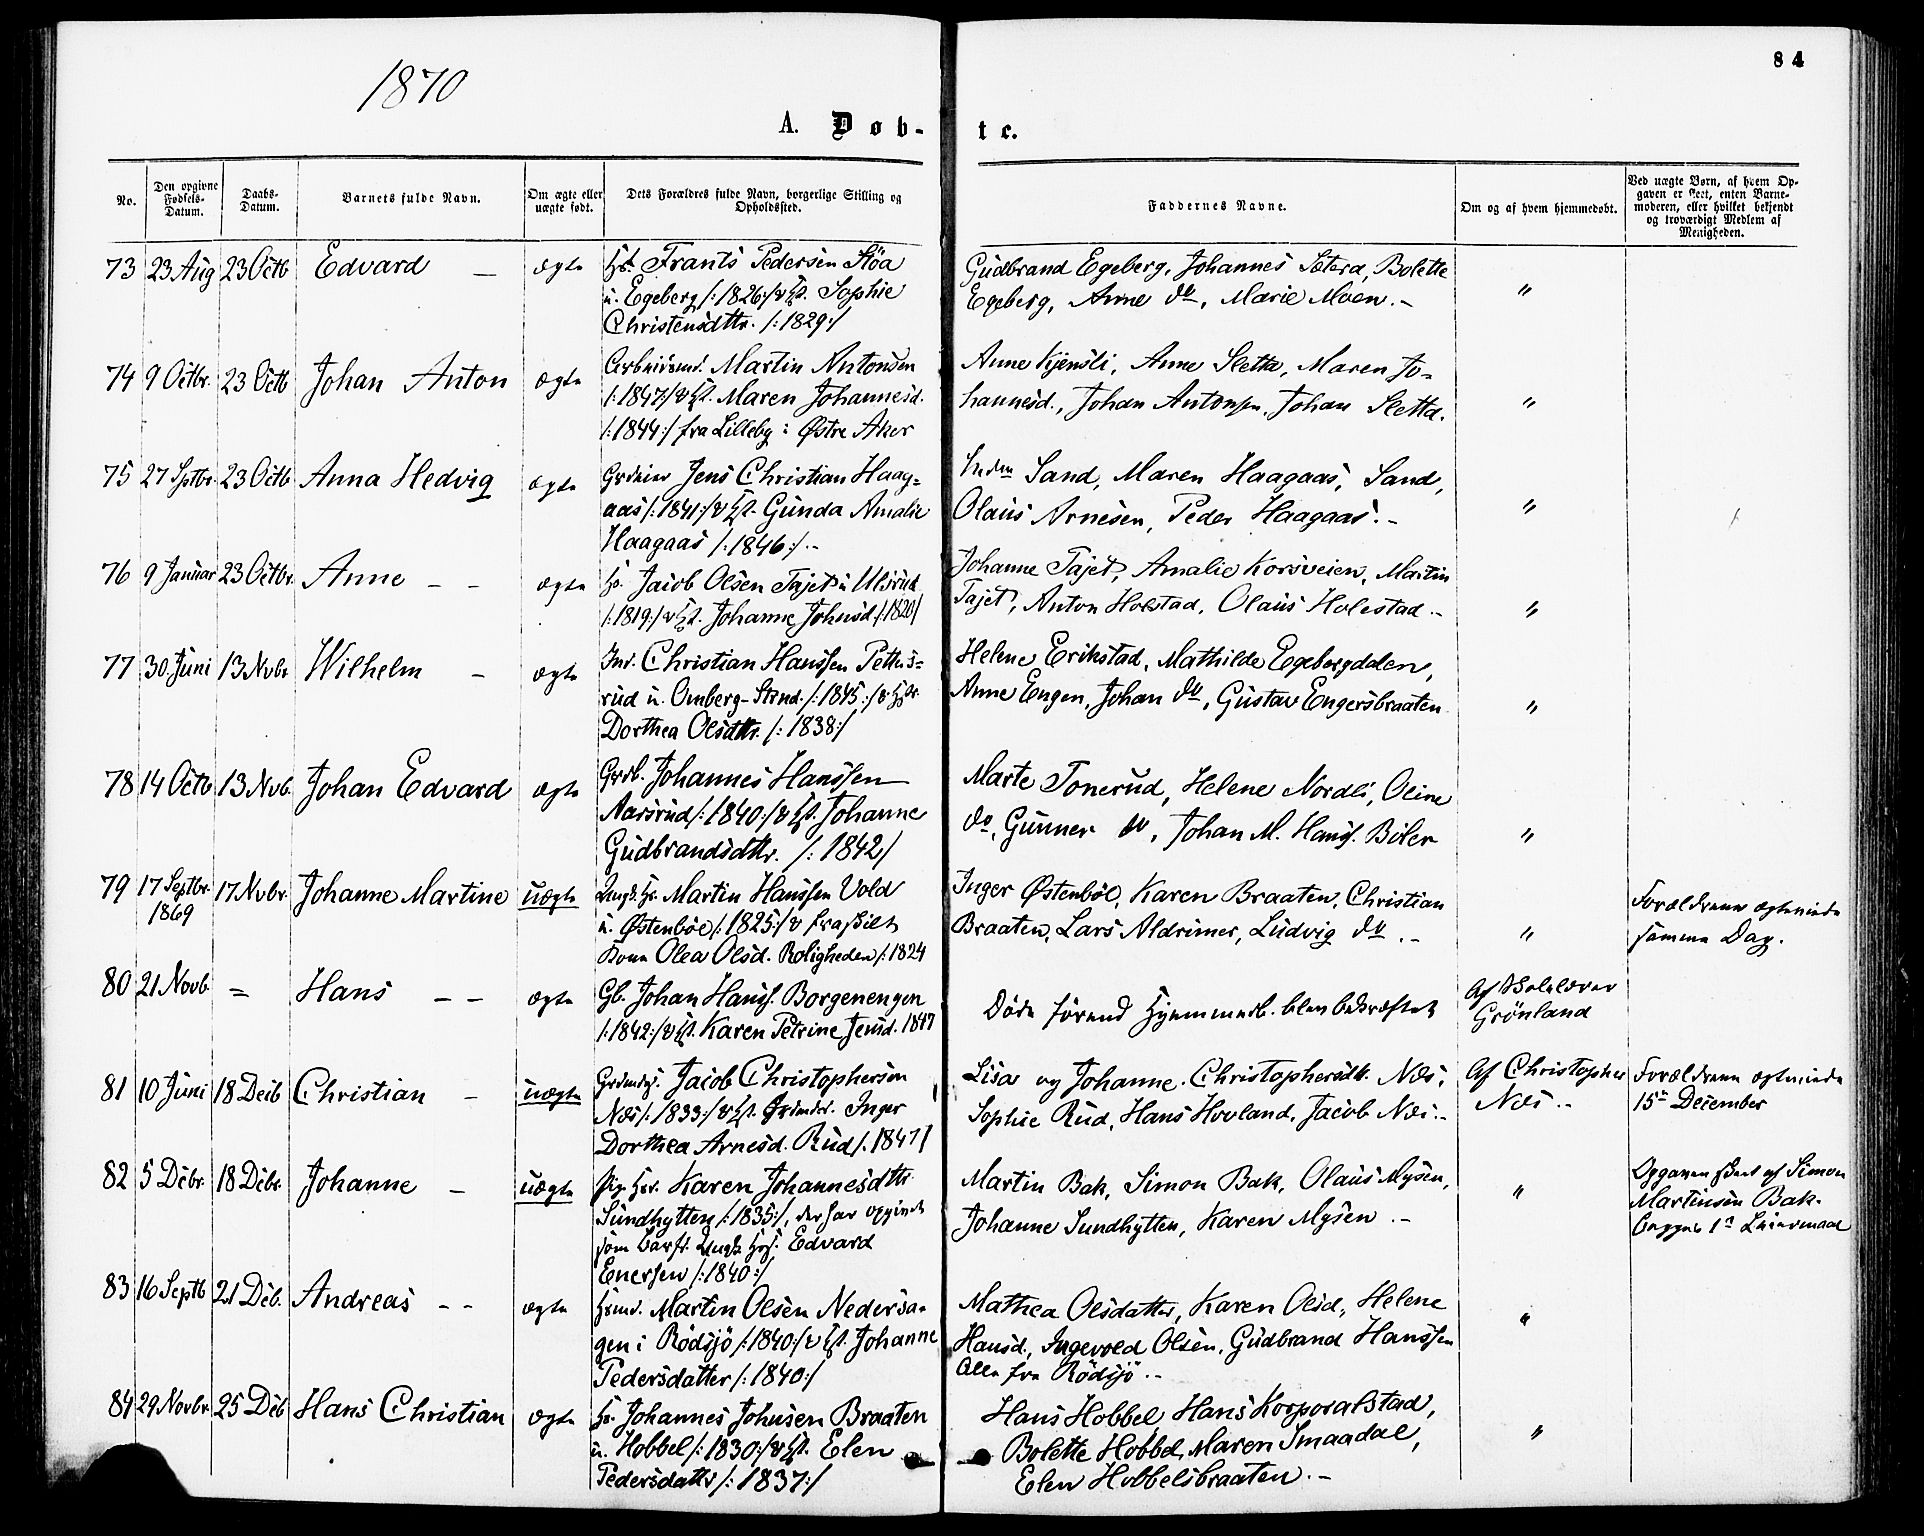 1870
84
A. Døb-
te.
No.
Den opgivne Fødsels-Datum.
Daabs-Datum.
Barnets fulde Navn.
Om ægte eller uægte født.
Dets Forældres fulde Navn, borgerlige Stilling og Opholdssted.
Faddernes Navne.
Om og af hvem hjemmedøbt.
Ved uægte Børn, af hvem Opgaven er skeet, enten Barnemoderen, eller hvilket bekjendt og troværdigt Medlem af Menigheden.
73 23 Aug 23 Octb Edvard — ægte
Frants Pedersen Støa
u. Egeberg /:1826:/ & Sophie
Christensdttr. /:1829:/
Gudbrand Egeberg, Johannes Sætera, Bolette
Egeberg, Anne do, Marie Moen.-
"
74 9 Octbr. 23 Octb Johan Anton ægte
Arbeidsmd. Martin Antonsen
/:1847:/ & Maren Johannesd.
/:1844:/ fra Lilleby i Østre Aker
Anne Kjensli, Anne Sletta, Maren Jo-
hannesd., Johan Antonsen, Johan Sletta.
"
75 27 Sptbr. 23 Octb Anna Hedvig ægte
Jens Christian Haag-
aas /:1841:/ & Gunda Amalie
Haagaas /:1846:/.-
Sand, Maren Haagaas, Sand,
Olaus Arnesen, Peder Haagaas.-
"
76 9 Januar 23 Octbr. Anne - - ægte
Jacob Olsen Tajet u Ulsrud
/:1819:/ & Johanne Johnsd /:1820/
Johanne Tajet, Amalie Korsveien, Martin
Tajet, Anton Holstad, Olaus Holestad.-
"
77 30 Juni 13 Nvbr Wilhelm - ægte
Ind. Christian Hanssen Petters-
rud u. Omberg-Strnd. /:1845:/ &
Dorthea Olsdttr. /:1838:/
Helene Erikstad, Mathilde Egebergdalen,
Anne Engen, Johan do, Gustav Engersbraaten
"
78 14 Octb 13 Nvb. Johan Edvard ægte
Grdb. Johannes Hanssen
Aarsrud /:1840:/ & Johanne
Gudbrandsdttr. /:1842/
Marte Tonerud, Helene Nordli, Oline
do, Gunner do, Johan M. Hanss. Biler
"
79 17 Septbr. 1869 17 Nvbr. Johanne Martine uægte
Martin Hanssen Vold
u. Østenböe /:1825:/ & fraskilt
Kone Olea Olsd. Roligheden /:1824
Inger Østenböe, Karen Braaten, Christian
Braaten, Lars Aldrimer, Ludvig do.-
"
Forældrene ægteviede
samme Dag.
80 21 Novb. = Hans - - ægte
Gb. Johan Hanss. Borgenengen
/:1842:/ & Karen Petrine Jensd. 1847
Døde førend Hjemmedb. blev bekræftet
Af Skolelærer
Grönland
81 10 Juni 18 Decb Christian - uægte
Jacob Christophersen
Næs /:1833:/ & Inger
Dorthea Arnesd. Rud /:1847/
Lisa og Johanne Christophersdtt. Næs,
Sophie Rud, Hans Hovland, Jacob Næs.-
Af Christopher
Næs.-
Forældrene ægteviede
15de December
82 5 Dcbr. 18 Dcbr. Johanne - uægte
Karen Johannesdttr.
Sundhytten /:1835:/, der har opgivet
som Barfr. Edvard
Enersen /:1840:/
Martin Bak, Simon Bak, Olaus Mysen,
Johanne Sundhytten, Karen Mysen.-
"
Opgaven skeet af Simon
Martinsen Bak.
Begges 1ste Leiermaal
83 16 Septb 21 Dcb. Andreas - - ægte
Martin Olsen Nedersa-
gen i Rödsjö /:1840:/ & Johanne
Pedersdatter /:1840:/
Mathea Olsdatter, Karen Olsd, Helene
Hansd., Ingevold Olsen, Gudbrand Hanssen
Alle fra Rödsjö.-
"
84 29 Novbr 25 Dcb Hans Christian ægte
Johannes Johnsen Braaten
u. Hobbel /:1830:/ & Elen
Pedersdattr /:1837:/
Hans Hobbel, Hans Korporalstad,
Bolette Hobbel, Maren Smaadal,
Elen Hobbelsbraaten.-
"